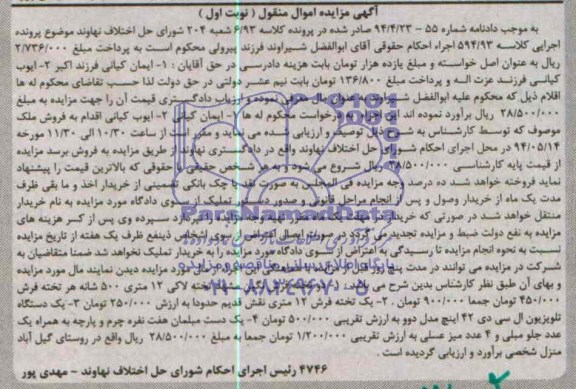 آگهی مزایده اموال منقول ( نوبت اول )
به موجب دادنامه شماره ۵۵ – ۹۴/۴/۲۳ صادر شده در پرونده کلاسه ۶/۹۳ شعبه ۲۰۴ شورای حل اختلاف نهاوند موضوع پرونده
اجرایی کلاسه ۵۹۴/۹۳ اجراء احکام حقوقی آقای ابوالفضل شیراوند فرزند پیرولی محکوم است به پرداخت مبلغ ۲/۷۳۶/۰۰۰
ریال به عنوان اصل خواسته و مبلغ یازده هزار تومان بابت هزینه دادرسی در حق آقایان : ۱- ایمان کیانی فرزند اکبر ۲- ایوب
کیانی فرزند عزت اله و پرداخت مبلغ ۱۳۶/۸۰۰ تومان بابت نیم عشر دولتی در حق دولت لذا حسب تقاضای محکوم له ها
اقلام ذیل که محکوم علیه ابوالفضل شیراوند به عنوان مال معرفی نموده و ارزیاب دادگستری قیمت آن را جهت مزایده به مبلغ
۲۸/۵۰۰/۰۰۰ ریال برآورد نموده اند این اجراء به درخواست محکوم له ها ۱- ایمان کیانی ۲- ایوب کیانی اقدام به فروش ملک
موصوف که توسط کارشناس به شرح ذیل توصیف و ارزیابی شده می نماید و مقرر است از ساعت ۱۰/۳۰ الی ۱۱/۳۰ مورخه
۹۴/۰۵/۱۴ در محل اجرای احکام شورای حل اختلاف نهاوند واقع در دادگستری نهاوند از طریق مزایده به فروش برسد مزایده
از قیمت پایه کارشناسی ۲۸/۵۰۰/۰۰۰ ریال شروع می شود و به هر شخص حقیقی یا حقوقی که بالاترین قیمت را پیشنهاد
نماید فروخته خواهد شد ده درصد وجه مزایده فی المجلس به صورت نقد یا چک بانکی تضمینی از خریدار اخذ و ما بقی ظرف
مدت یک ماه از خریدار وصول و پس از انجام مراحل قانونی و صدور دستور تملیک از سوی دادگاه مورد مزایده به نام خریدار
منتقل خواهد شد در صورتی که خریدار
مزایده به نفع دولت ضبط و مزایده تجدید می گردد در صورت ایصال اعتراض از سوی اشخاص ذینفع ظرف یک هفته از تاریخ مزایده
نسبت به نحوه انجام مزایده تا رسیدگی به اعتراض از سوی دادگاه مورد مزایده را به خریدار تملیک نخواهد شد ضمنا متقاضیان به
شرکت در مزایده می توانند در مدت پنج روز قبل از مزایده از مورد مزایده دیدن نمایند مال مورد مزایده
و بهای آن طبق نظر کارشناس بدین شرح می باشد: ۱- دو تخته فرش لاکی ۱۲ متری ۵۰۰ شانه هر تخته فرش
۴۵۰/۰۰۰ تومان جمعا ۹۰۰/۰۰۰ تومان ۲- یک تخته فرش ۱۲ متری نقش قدیم حدودا به ارزش ۲۵۰/۰۰۰ تومان ۳- یک دستگاه
تلویزیون ال سی دی ۴۲ اینچ مدل دوو به ارزش تقریبی ۵۰۰/۰۰۰ تومان ۴- یک دست مبلمان هفت نفره چرم و پارچه به همراه یک
عدد جلو مبلی و ۴ عدد میز عسلی به ارزش تقریبی ۱/۲۰۰/۰۰۰ تومان جمعا به مبلغ ۲۸/۵۰۰/۰۰۰ ریال واقع در روستای گیل آباد
منزل شخصی برآورد و ارزیابی گردیده است .
۴۷۴۶ رئیس اجرای احکام شورای حل اختلاف نهاوند – مهدی پور